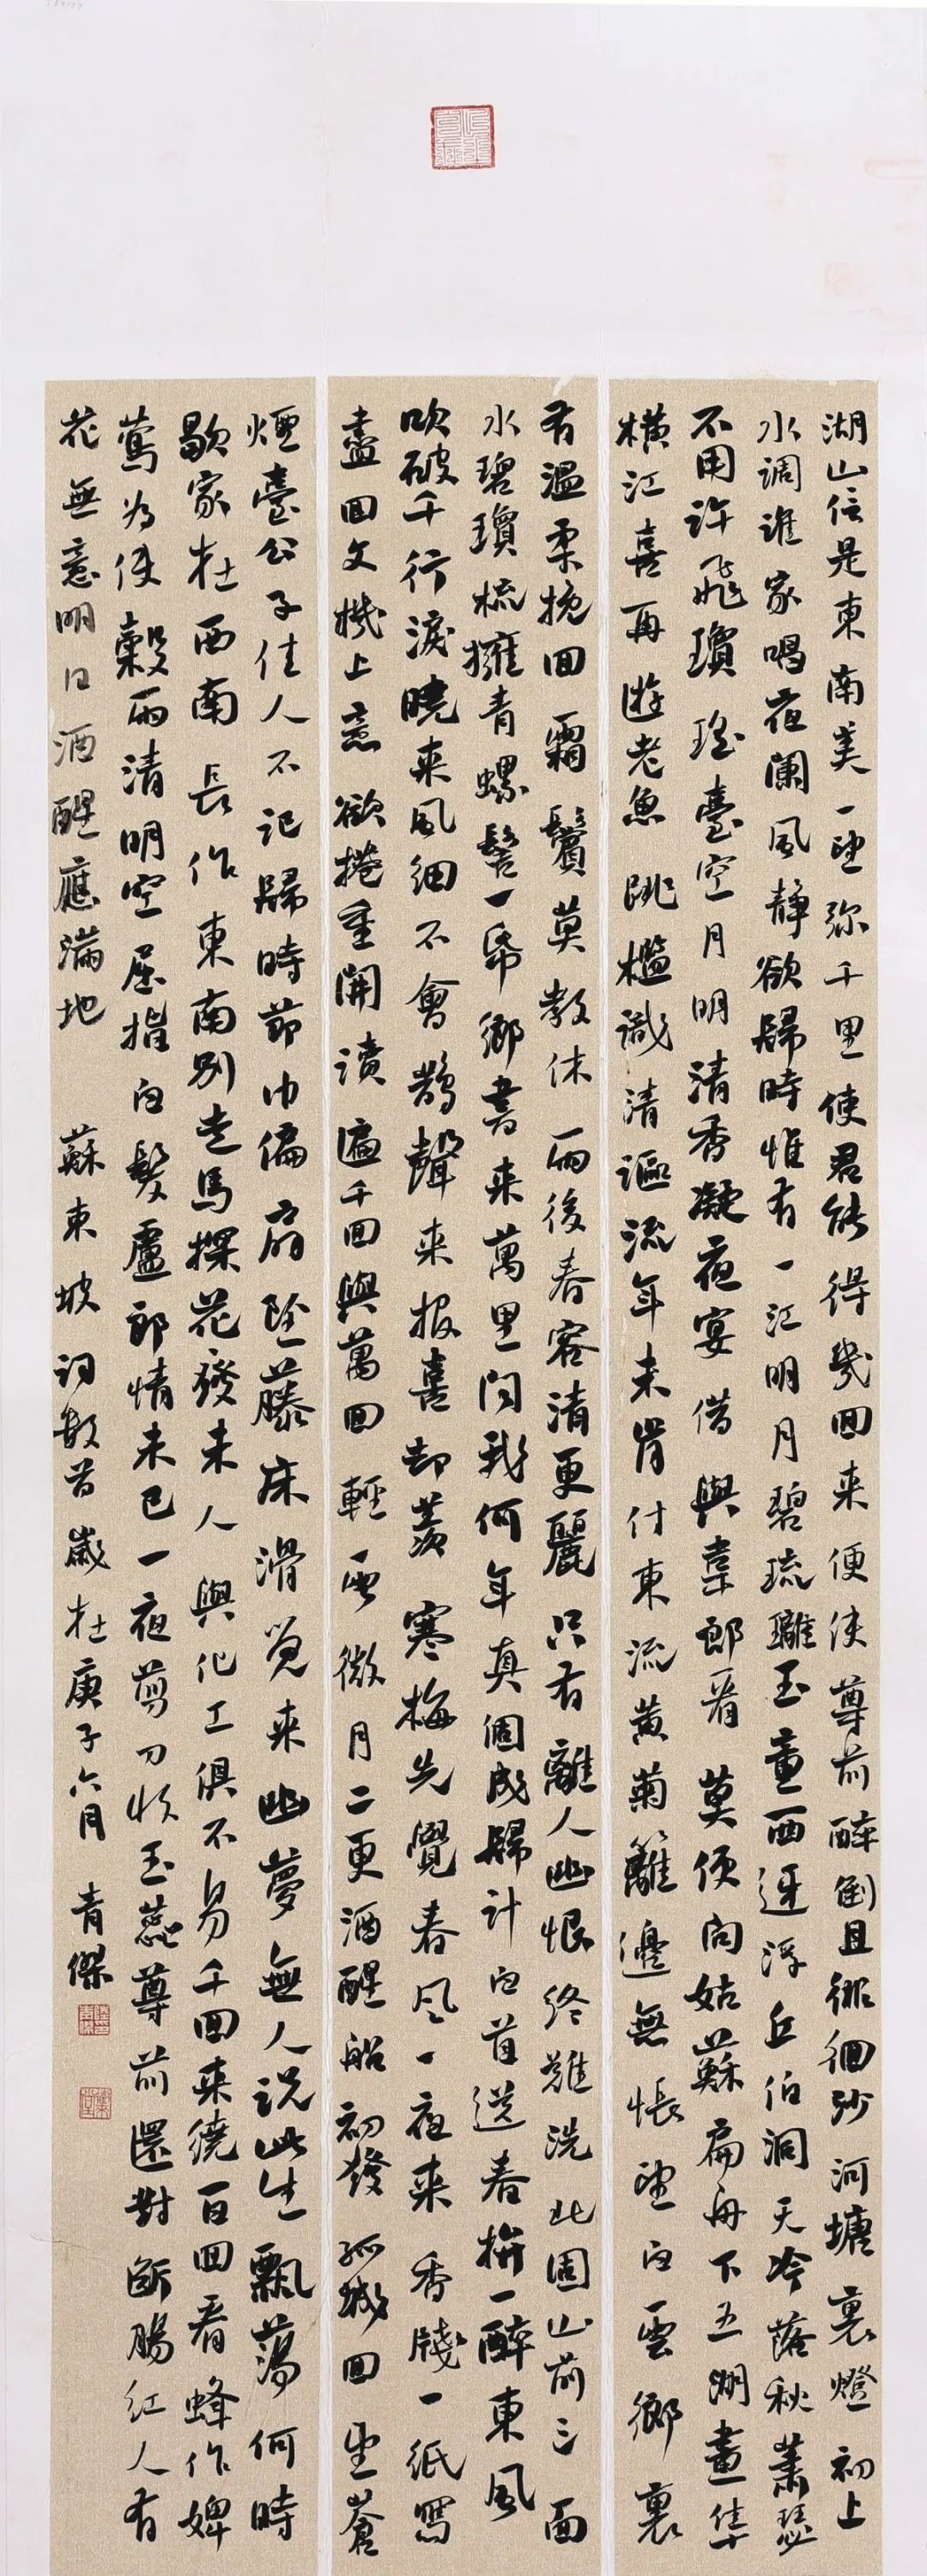 湖山信是東南美一望弥千里使君能得幾回来便使尊前醉倒且徘徊沙河塘裏燈初上
水調誰家唱夜闌風静欲歸時惟有一江明月碧琉璃玉童西迓浮丘伯洞天冷落秋蕭瑟
不用許飛瓊瑶臺空月明清香凝夜宴借與韋郎看莫便向姑蘇扁舟下五湖畫隼
横江喜再遊老魚跳檻識清謳流年未肯付東流黄菊籬邊無悵望白雲鄉裏
有温柔挽回霜鬢莫教休雨後春容清更麗只有離人幽恨終難洗北固山前三面
水碧瓊梳擁青螺髻一帋鄉書来萬里問我何年真個成歸計白首送春拚一醉東風
吹破千行淚曉来風細不會鵲聲来报喜却羡寒梅先覺春風一夜来香牋一纸寫
盡回文機上意欲捲重開讀遍千回與萬回輕雲微月二更酒醒船初發孤城回望蒼
煙臺公子佳人不記歸時節巾偏扇墜藤床滑覚来幽夢無人説此生飄蕩何時
歇家在西南長作東南别走馬探花發未人與化工俱不易千回来繞百回看蜂作婢
鶯为使穀雨清明空屈指白髮盧郎情未已一夜剪刀收玉蕊尊前還對斷腸红人有
花無意明日酒醒應滿地 蘇東坡词数首歲在庚子六月 青傑